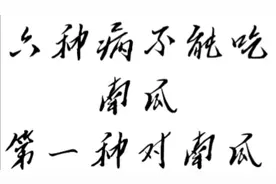 六种病不能吃
南瓜
第一种对南瓜